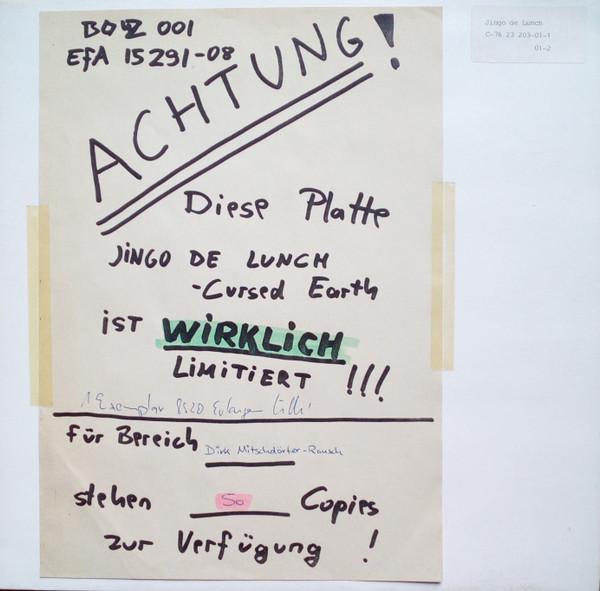 BOLZ 001
EfA 15291-08
ACHTUNG!
Jingo de Lunch
C-76 23 203-01-1
01-2
Diese Platte
JiNGO DE LUNCH
-Cursed Earth
iST WiRKLiCH
LiMiTiERT !!!
1 Exemplar 8520 Erlangen
für Bereich Dirk Mitschdörfer-Rausch
stehen 50 Copies
zur Verfügung !